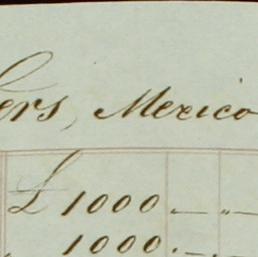 ers, Mexico
£ 1000 . — „ —
1000 . — „ —